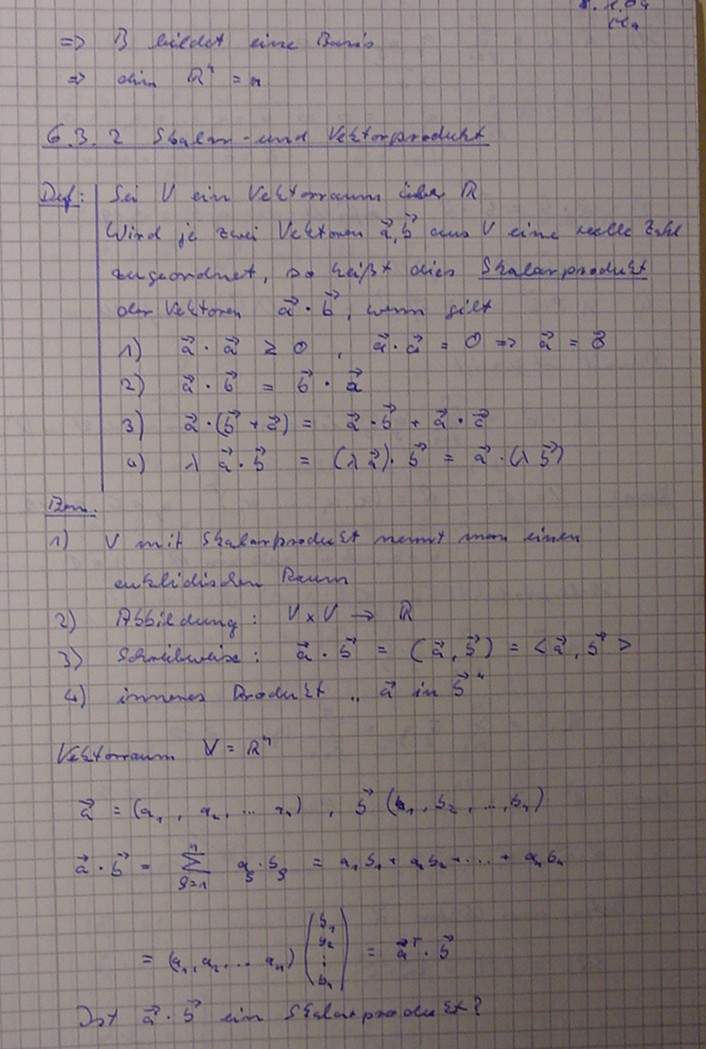 8.1.04
=> B bildet eine Basis
=> dim ℝⁿ = n
6.3.2 Skalar- und Vektorprodukt
Def: Sei V ein Vektorraum über ℝ
Wird je zwei Vektoren a⃗, b⃗ aus V eine reelle Zahl
zugeordnet, so heißt dies Skalarprodukt
der Vektoren a⃗ · b⃗, wenn gilt
1) a⃗ · a⃗ ≥ 0 , a⃗ · a⃗ = 0 => a⃗ = 0⃗
2) a⃗ · b⃗ = b⃗ · a⃗
3) a⃗ · (b⃗ + c⃗) = a⃗ · b⃗ + a⃗ · c⃗
4) λ a⃗ · b⃗ = (λ a⃗) · b⃗ = a⃗ · (λ b⃗)
Bem.
1) V mit Skalarprodukt nennt man einen
euklidischen Raum
2) Abbildung: V x V → ℝ
3) Schreibweise: a⃗ · b⃗ = (a⃗, b⃗) = <a⃗, b⃗>
4) inneres Produkt „a⃗ in b⃗"
Vektorraum V = ℝⁿ
a⃗ = (a₁, a₂, ... aₙ) , b⃗ (b₁, b₂, ..., bₙ)
a⃗ · b⃗ = ∑ⁿ_{ρ=1} a_ρ · b_ρ = a₁b₁ + a₂b₂ + ... + aₙbₙ
= (a₁, a₂ ... aₙ) (b₁ b₂ ⋮ bₙ) = a⃗ᵀ · b⃗
Ist a⃗ · b⃗ ein Skalarprodukt?